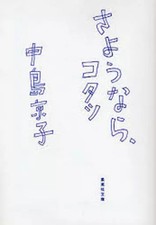 さようなら、
コタツ
中島京子
集英社文庫